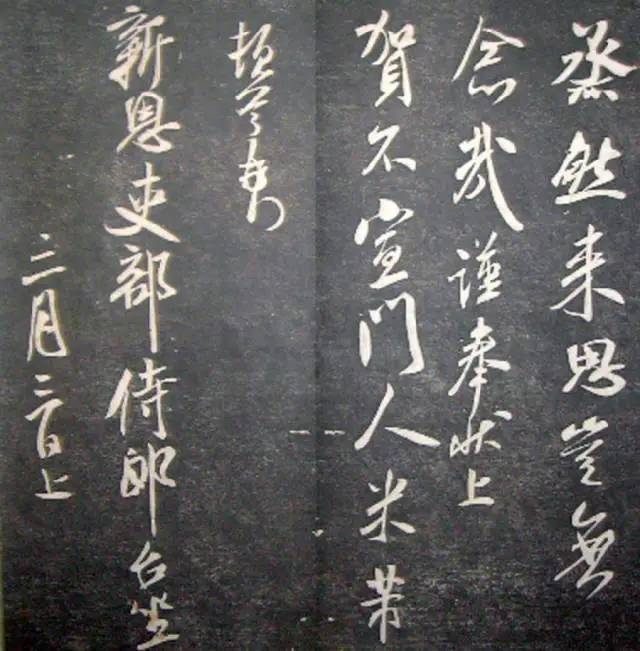 蒸然来思豈無
念哉謹奉状上
賀不宣門人米芾
頓首再拜
新恩吏部侍郎台坐
二月三日上